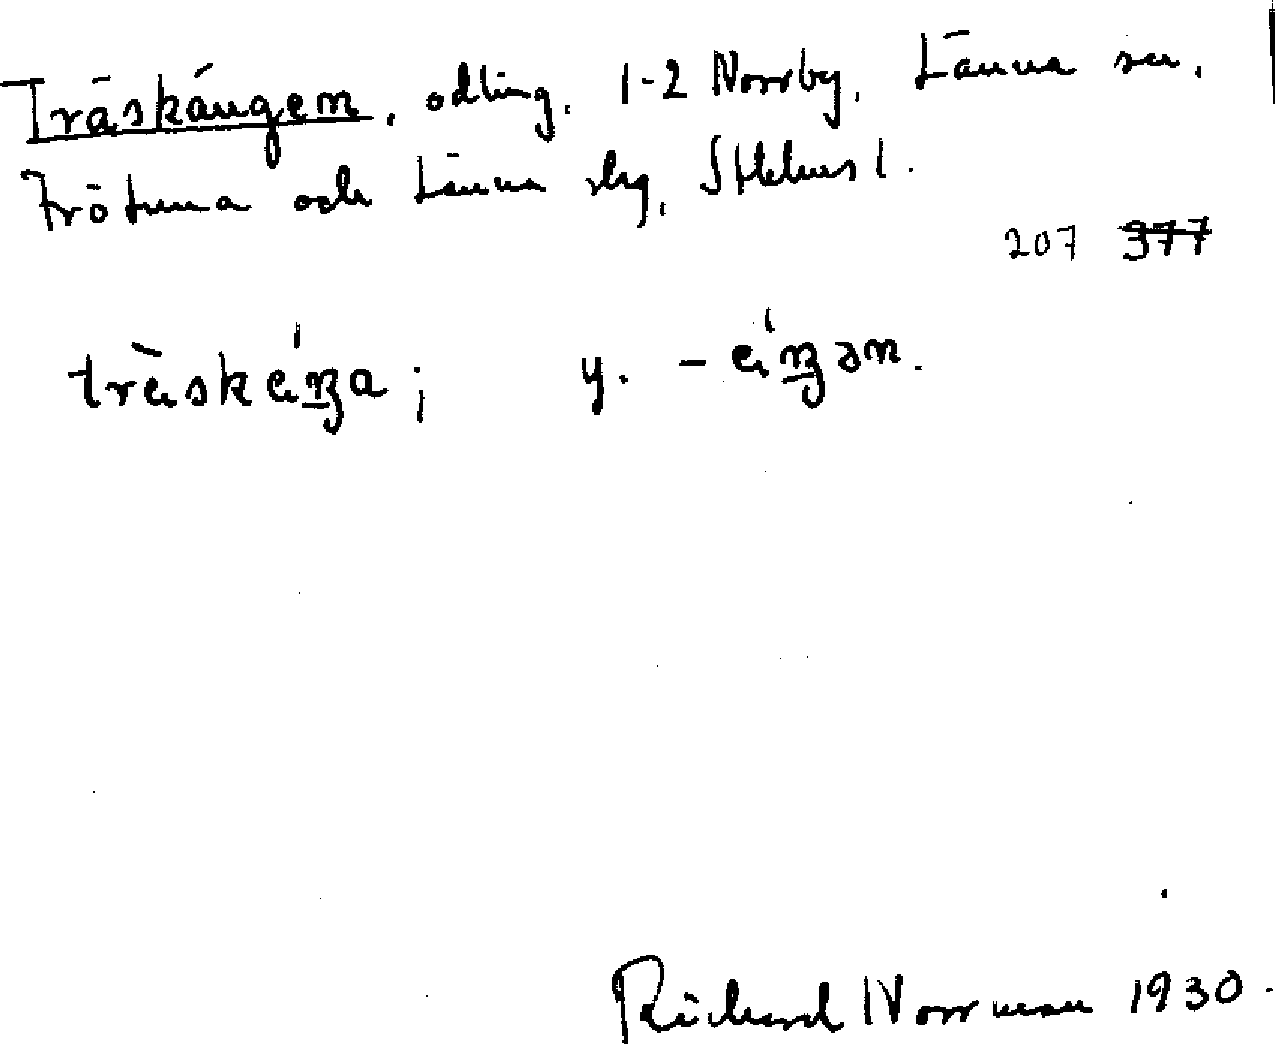 Träskängen, odling, 1-2 Norrby, Länna sn.
Frötuna och Länna skg, Sthlms l.
207 377
träskäŋa; y. -äŋən.
Rickard Norrman 1930.